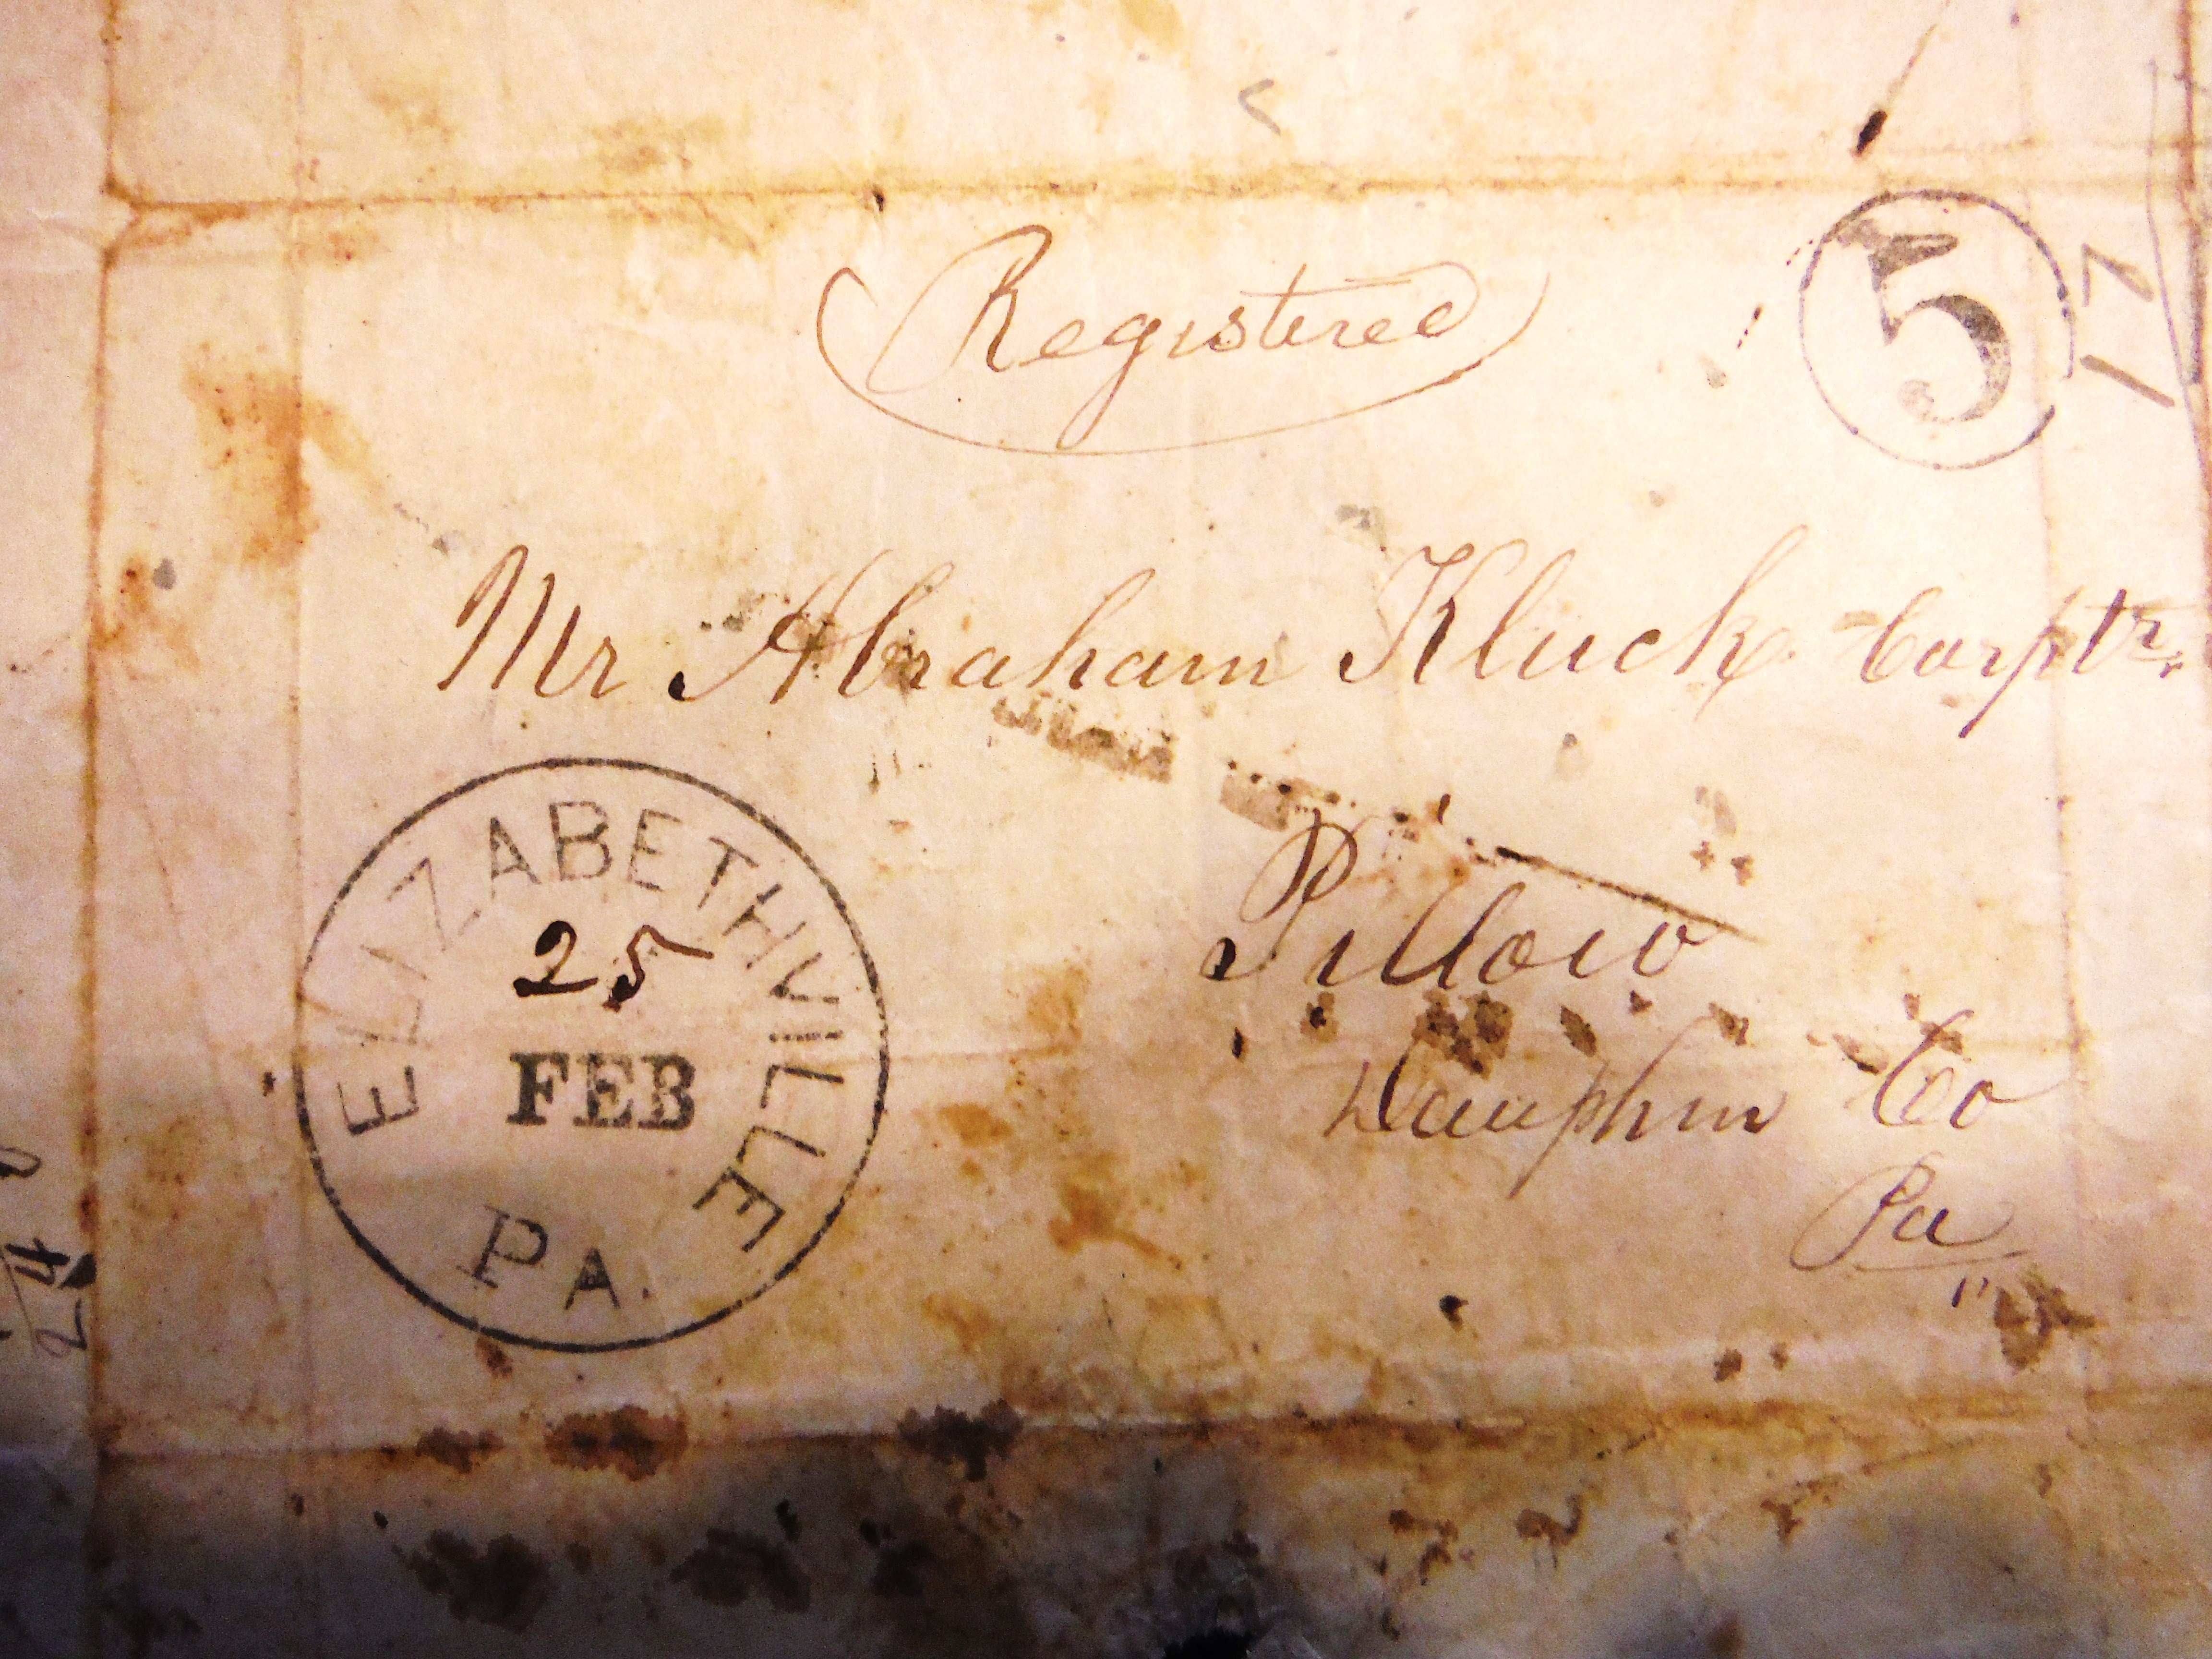 Registered
5
17
Mr Abraham Kluck Carptr.
ELIZABETHVILLE
25
FEB
PA.
Pillow
Dauphin Co
Pa
24